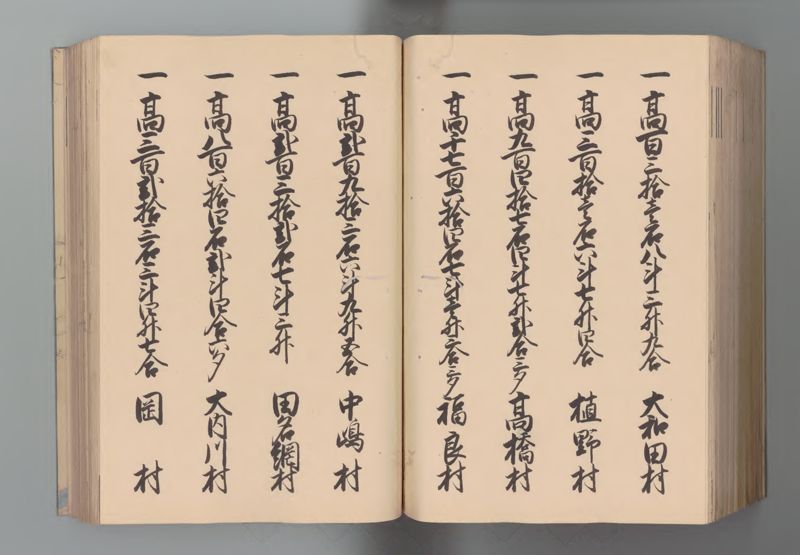 一 高百三拾壱石八斗三升九合 大和田村
一 高三百拾壱石六斗七升四合 植野村
一 高九百四拾七石四斗七升弐合三夕 高橋村
一 高千七百六拾四石七斗壱升六合三夕 福良村
一 高弐百九拾三石六斗九升五合 中嶋村
一 高弐百三拾弐石七斗三升 田名網村
一 高八百六拾四石弐斗四合六夕 大内川村
一 高三百弐拾三石三斗四升七合 岡村